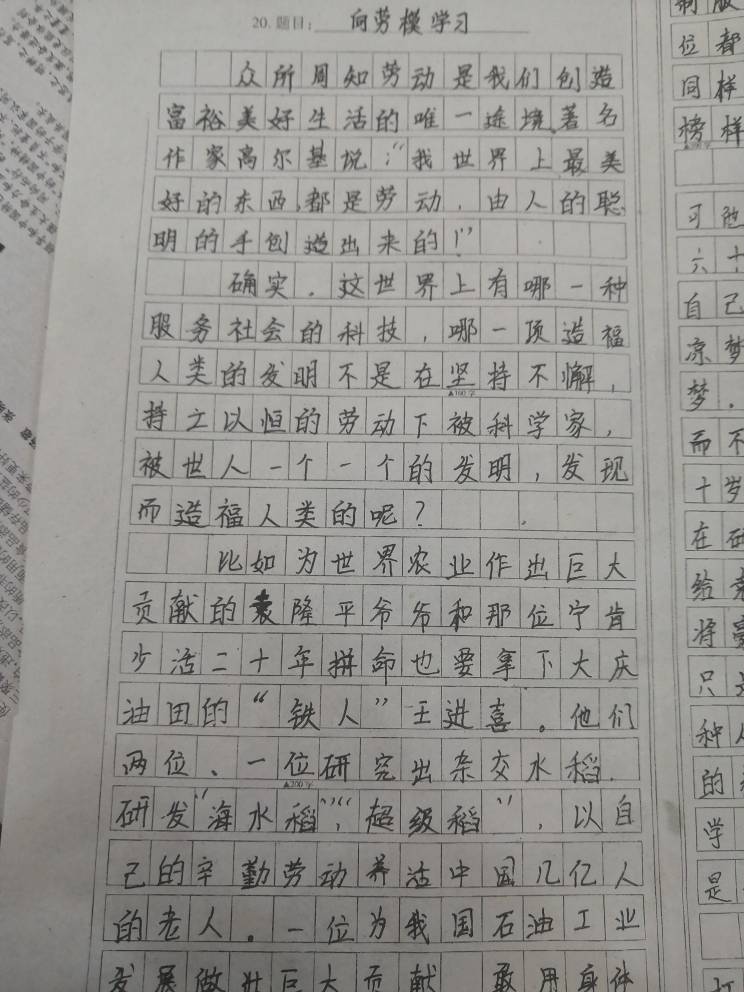 20. 题目: 向劳模学习
众所周知劳动是我们创造
富裕美好生活的唯一途境。著名
作家高尔基说:“我世界上最美
好的东西,都是劳动,由人的聪
明的手创造出来的!”
确实,这世界上有哪一种
服务社会的科技,哪一项造福
人类的发明不是在坚持不懈,
▲100字
持之以恒的劳动下被科学家,
被世人一个一个的发明,发现
而造福人类的呢?
比如为世界农业作出巨大
贡献的袁隆平爷爷和那位宁肯
少活二十年拼命也要拿下大庆
油田的“铁人”王进喜。他们
两位、一位研究出杂交水稻.
▲200字
研发“海水稻”,“超级稻”,以自
己的辛勤劳动养活中国几亿人
的老人。一位为我国石油工业
发展做出巨大贡献 敢用身体
制版
位都
同样
榜样
可他
六十
自己
凉梦
梦.
而不
十岁
在研
给
将
只
种人
的
学
是
打